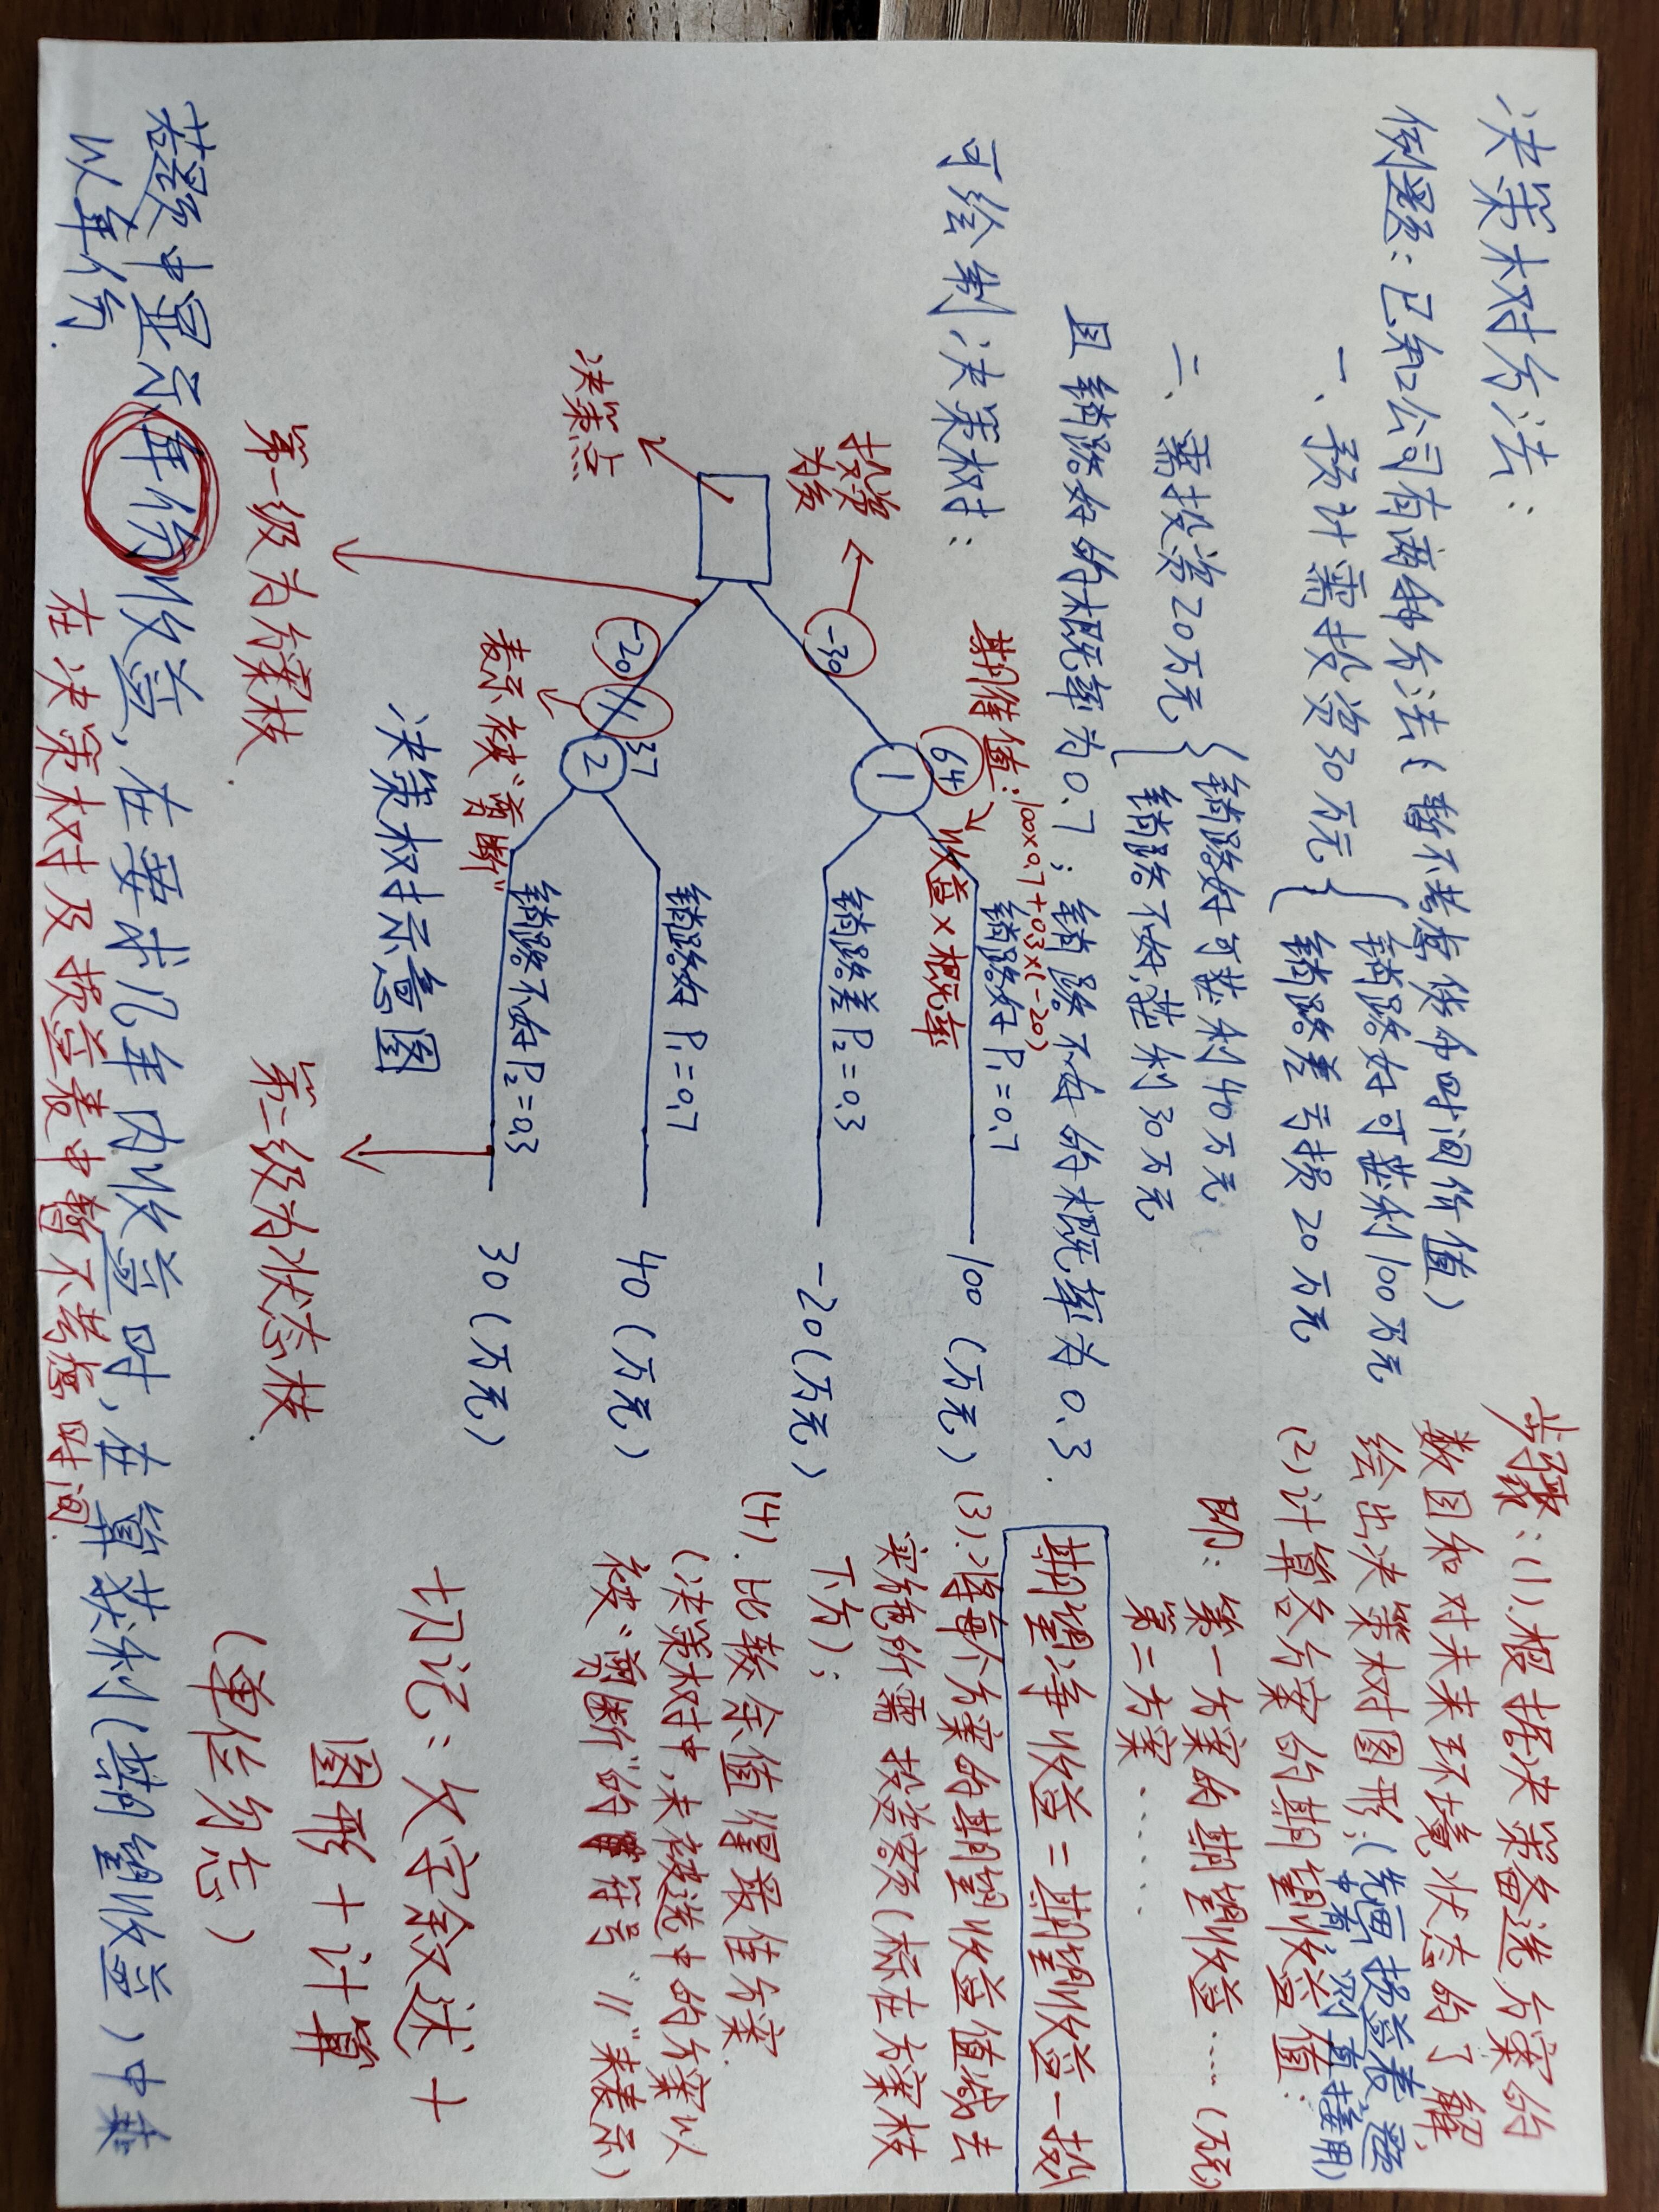 决策树方法:
例题: 已知2公司有两种方法(暂不考虑货币时间价值)
一、预计需投资30万元{销路好可获利100万元
销路差亏损20万元
二、需投资20万元{销路好可获利40万元
销路不好,获利30万元
且销路好的概率为0.7;销路不好的概率为0.3.
可绘制决策树:
期望值:100×0.7+0.3×(-20)
收益×概率
投资为负
-30
64
1
销路好 P1=0.7
100(万元)
销路差 P2=0.3
-20(万元)
决策点
-20
37
2
销路好 P1=0.7
40(万元)
销路不好 P2=0.3
30(万元)
表示被"剪断"
决策树示意图
第一级为方案枝
第二级为状态枝
步骤:(1).根据决策备选方案的
数目和对未来环境状态的了解,
绘出决策树图形;(先画损益表,题
中有,则直接用)
(2)计算各方案的期望收益值:
即:第一方案的期望收益……(万元)
第二方案……
期望净收益=期望收益-投
(3).将每个方案的期望收益值减去
实施所需投资额(标在方案枝
下方);
(4).比较余值得最佳方案.
(决策树中,未被选中的方案以
被"剪断"的符号"//"来表示)
切记:文字叙述+
图形+计算
(单位勿忘)
若题中显示年份收益,在要求几年内收益时,在算获利(期望收益)中乘
以年份.
在决策树及损益表中暂不考虑时间.